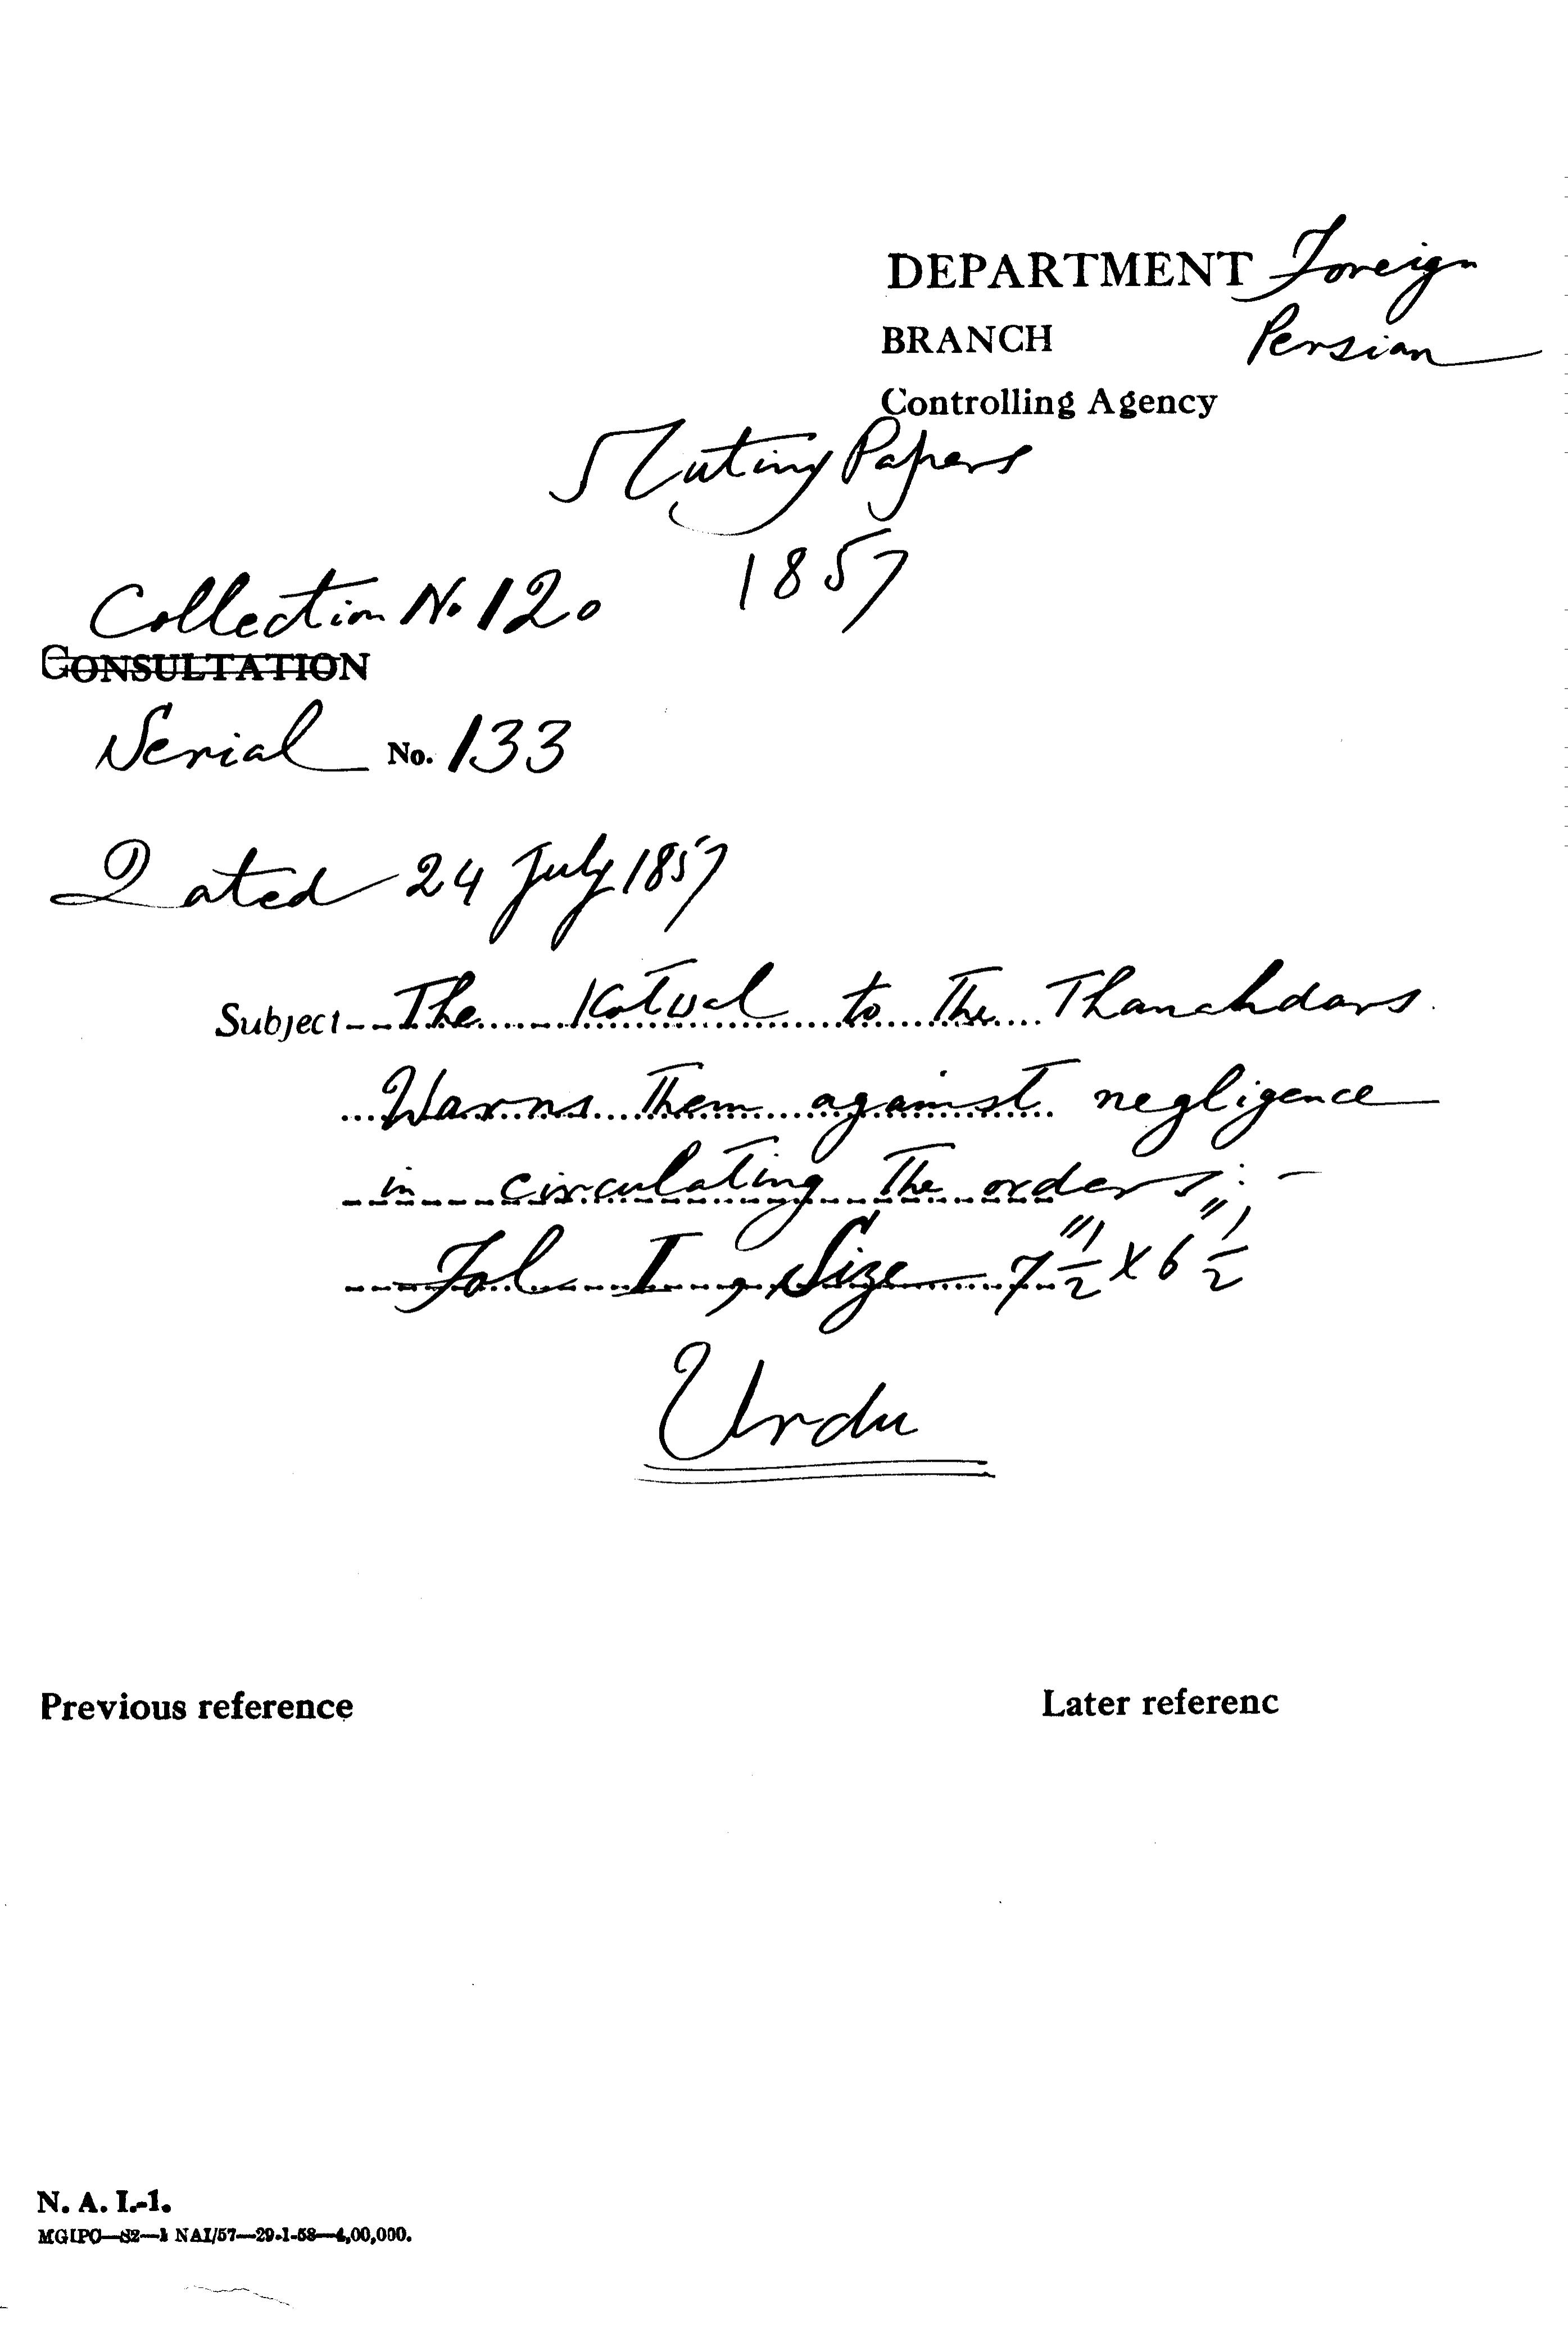 DEPARTMENT Foreign
BRANCH Persian
Controlling Agency
Mutiny Papers
1857
Collection No. 120
CONSULTATION
Serial No. 133
Dated 24 July 1857
Subject The Kotwal to the Thanahdars.
Warns them against negligence
in circulating the orders:-
Fol I, Size 7 1/2" x 6 1/2"
Urdu
Previous reference
Later referenc
N. A. I.-1.
MGIPC—S2—1 NAI/57—29-1-58—4,00,000.